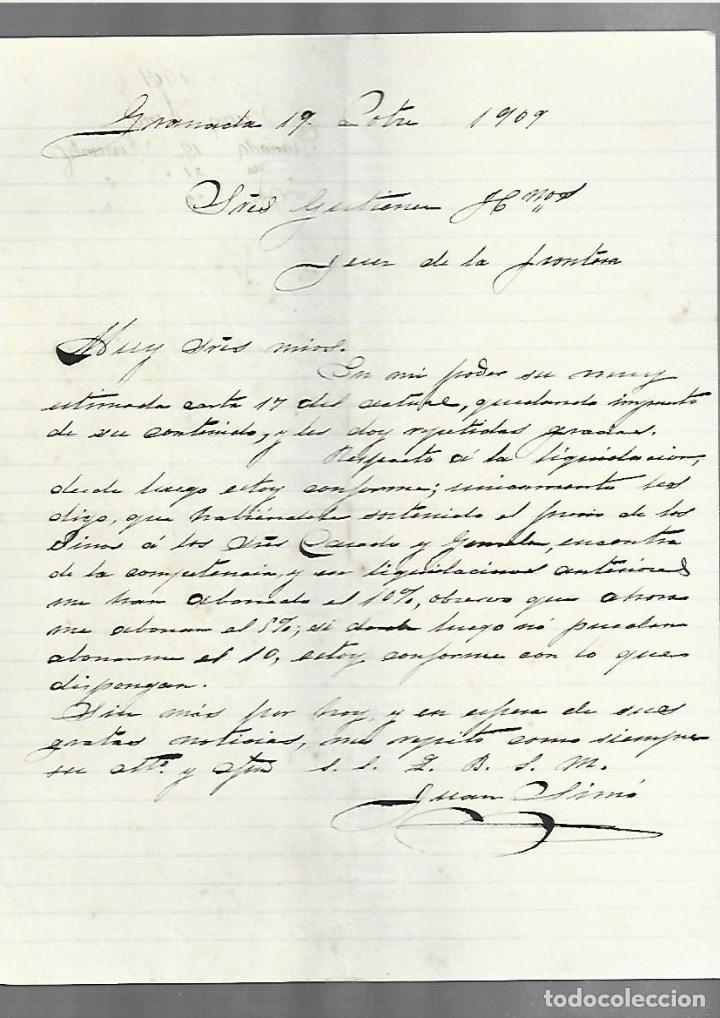 Granada 19 Lotre 1909
Sres Gutierrez Hnos
Jerez de la frontera
Muy Sres mios.
En mi poder su muy
estimada carta 17 del actual, quedando impuesto
de su contenido, y les doy repetidas gracias.
Respecto á la liquidacion,
desde luego estoy conforme; unicamente les
digo, que habiendole sostenido el precio de los
Vinos á los Sres Casado y encontra
de la competencia, y en liquidaciones anteriores
me han abonado el 10%, observo que ahora
me abonan el 5%; si desde luego nó puedan
abonarme el 10, estoy conforme con lo que
dispongan.
Sin más por hoy, y en espera de sus
gratas noticias, me repito como siempre
su atto. y afmo s. s. Q. B. S. M.
Juan Simó
todocoleccion